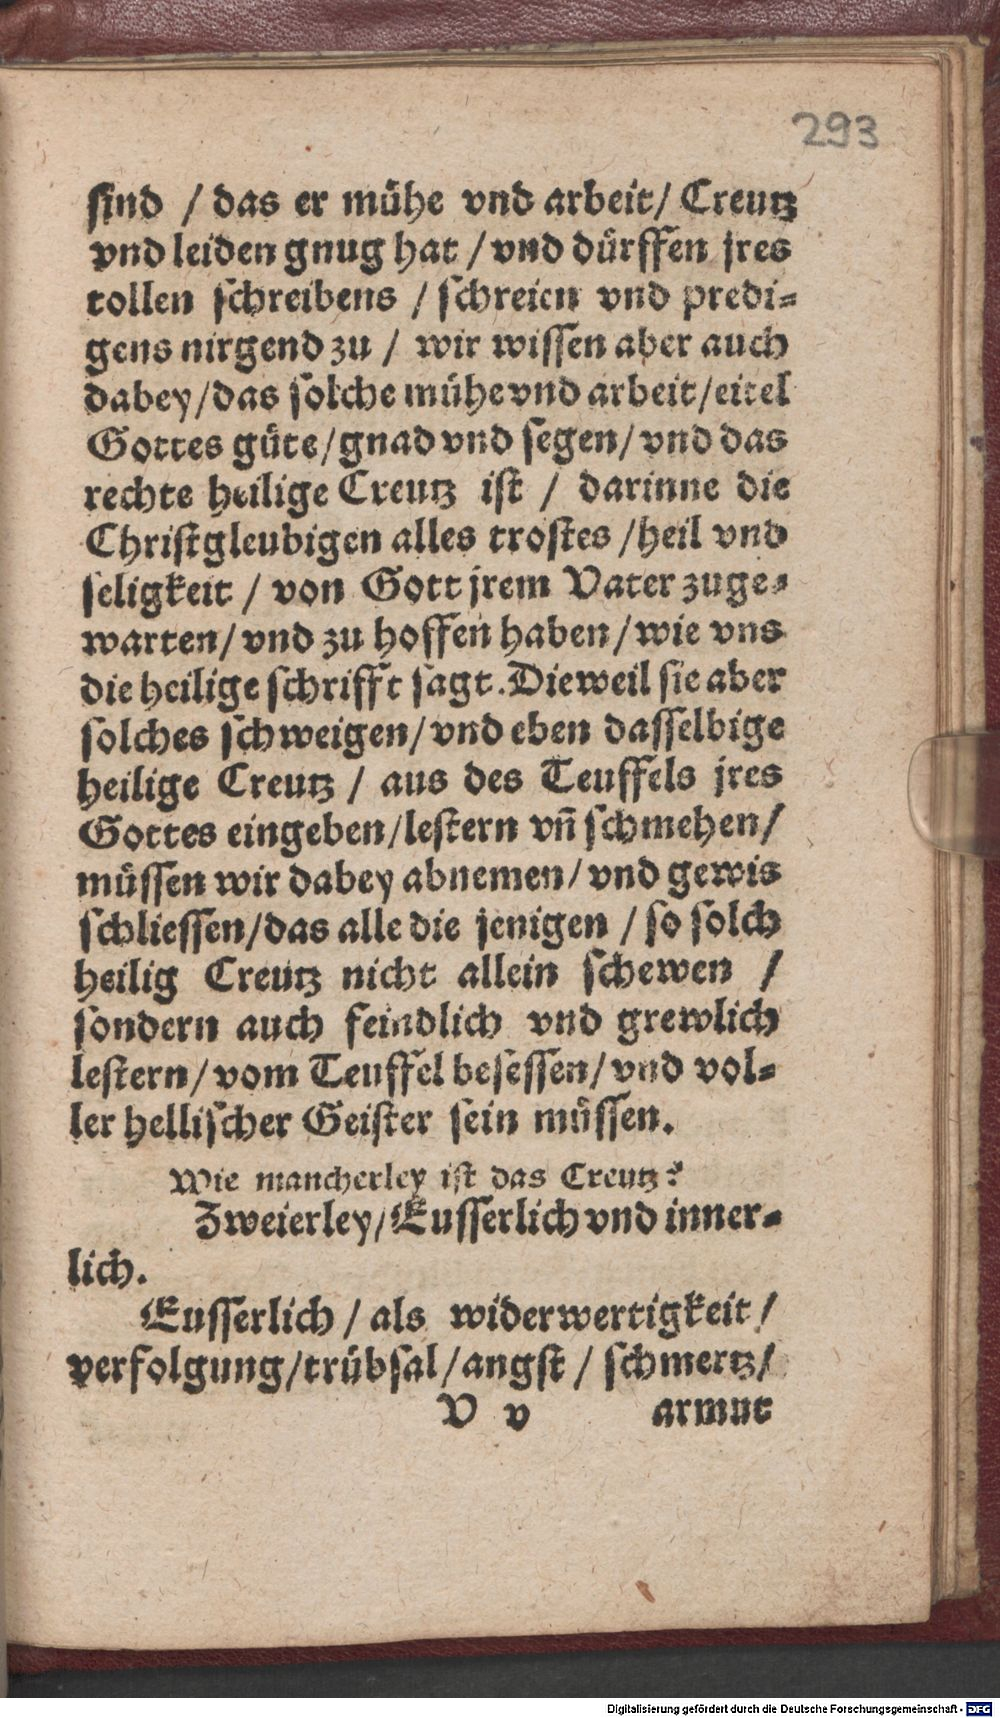 293
sind / das er mühe vnd arbeit / Creutz
vnd leiden gnug hat / vnd dürffen jres
tollen schreibens / schreien vnd predi-
gens nirgend zu / wir wissen aber auch
dabey / das solche mühe vnd arbeit / eitel
Gottes güte / gnad vnd segen / vnd das
rechte heilige Creutz ist / darinne die
Christgleubigen alles trostes / heil vnd
seligkeit / von Gott jrem Vater zuge-
warten / vnd zu hoffen haben / wie vns
die heilige schrifft sagt. Dieweil sie aber
solches schweigen / vnd eben dasselbige
heilige Creutz / aus des Teuffels jres
Gottes eingeben / lestern vñ schmehen /
müssen wir dabey abnemen / vnd gewis
schliessen / das alle die jenigen / so solch
heilig Creutz nicht allein schewen /
sondern auch feindlich vnd grewlich
lestern / vom Teuffel besessen / vnd vol-
ler hellischer Geister sein müssen.
Wie mancherley ist das Creutz?
Zweierley / Eusserlich vnd inner-
lich.
Eusserlich / als widerwertigkeit /
verfolgung / trübsal / angst / schmertz /
V v armut
Digitalisierung gefördert durch die Deutsche Forschungsgemeinschaft - DFG